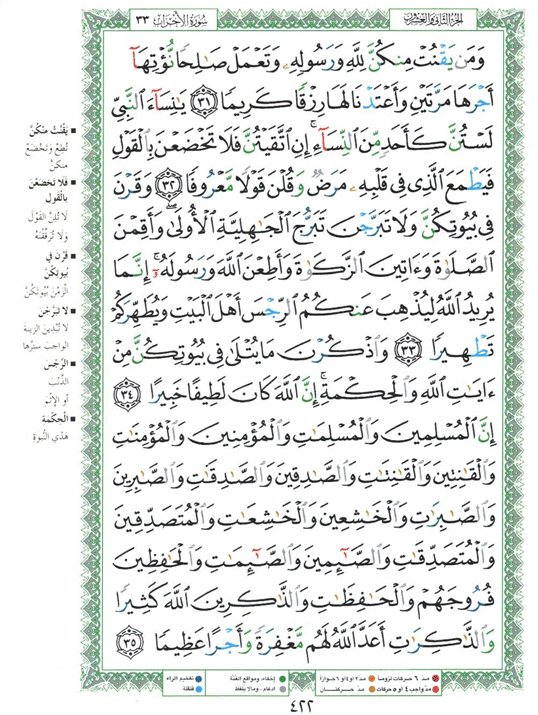 الجزء الثاني والعشرون
سورة الأحزاب ٣٣
وَمَن يَقْنُتْ مِنكُنَّ لِلَّهِ وَرَسُولِهِۦ وَتَعْمَلْ صَٰلِحًا نُّؤْتِهَآ
أَجْرَهَا مَرَّتَيْنِ وَأَعْتَدْنَا لَهَا رِزْقًا كَرِيمًا ٣١ يَٰنِسَآءَ ٱلنَّبِىِّ
لَسْتُنَّ كَأَحَدٍ مِّنَ ٱلنِّسَآءِ ۚ إِنِ ٱتَّقَيْتُنَّ فَلَا تَخْضَعْنَ بِٱلْقَوْلِ
فَيَطْمَعَ ٱلَّذِى فِى قَلْبِهِۦ مَرَضٌ وَقُلْنَ قَوْلًا مَّعْرُوفًا ٣٢ وَقَرْنَ
فِى بُيُوتِكُنَّ وَلَا تَبَرَّجْنَ تَبَرُّجَ ٱلْجَٰهِلِيَّةِ ٱلْأُولَىٰ ۖ وَأَقِمْنَ
ٱلصَّلَوٰةَ وَءَاتِينَ ٱلزَّكَوٰةَ وَأَطِعْنَ ٱللَّهَ وَرَسُولَهُۥٓ ۚ إِنَّمَا
يُرِيدُ ٱللَّهُ لِيُذْهِبَ عَنكُمُ ٱلرِّجْسَ أَهْلَ ٱلْبَيْتِ وَيُطَهِّرَكُمْ
تَطْهِيرًا ٣٣ وَٱذْكُرْنَ مَا يُتْلَىٰ فِى بُيُوتِكُنَّ مِنْ
ءَايَٰتِ ٱللَّهِ وَٱلْحِكْمَةِ ۚ إِنَّ ٱللَّهَ كَانَ لَطِيفًا خَبِيرًا ٣٤
إِنَّ ٱلْمُسْلِمِينَ وَٱلْمُسْلِمَٰتِ وَٱلْمُؤْمِنِينَ وَٱلْمُؤْمِنَٰتِ
وَٱلْقَٰنِتِينَ وَٱلْقَٰنِتَٰتِ وَٱلصَّٰدِقِينَ وَٱلصَّٰدِقَٰتِ وَٱلصَّٰبِرِينَ
وَٱلصَّٰبِرَٰتِ وَٱلْخَٰشِعِينَ وَٱلْخَٰشِعَٰتِ وَٱلْمُتَصَدِّقِينَ
وَٱلْمُتَصَدِّقَٰتِ وَٱلصَّٰٓئِمِينَ وَٱلصَّٰٓئِمَٰتِ وَٱلْحَٰفِظِينَ
فُرُوجَهُمْ وَٱلْحَٰفِظَٰتِ وَٱلذَّٰكِرِينَ ٱللَّهَ كَثِيرًا
وَٱلذَّٰكِرَٰتِ أَعَدَّ ٱللَّهُ لَهُم مَّغْفِرَةً وَأَجْرًا عَظِيمًا ٣٥
■ يَقْنُتْ مِنكُنَّ
تُطِعْ وَتَخْضَعْ
مِنكُنَّ
■ فَلَا تَخْضَعْنَ
بِالْقَوْلِ
لَا تُلِنَّ الْقَوْلَ
وَلَا تُرَقِّقْنَهُ
■ قَرْنَ فِي
بُيُوتِكُنَّ
الْزَمْنَ بُيُوتَكُنَّ
■ لَا تَبَرَّجْنَ
لَا تُبْدِينَ الزِّينَةَ
الوَاجِبَ سَتْرُهَا
■ الرِّجْسَ
الذَّنْبَ
أَوِ الإِثْمَ
■ الْحِكْمَةِ
هَدْيِ النُّبُوَّةِ
مدّ ٦ حركات لزوماً ● مدّ ٢ أو ٤ أو ٦ جوازاً
مدّ واجب ٤ أو ٥ حركات ● مدّ حركتان
إخفاء، ومواقع الغنّة
ادغام، ومالا يُلفظ
تفخيم الراء
قلقلة
٤٢٢